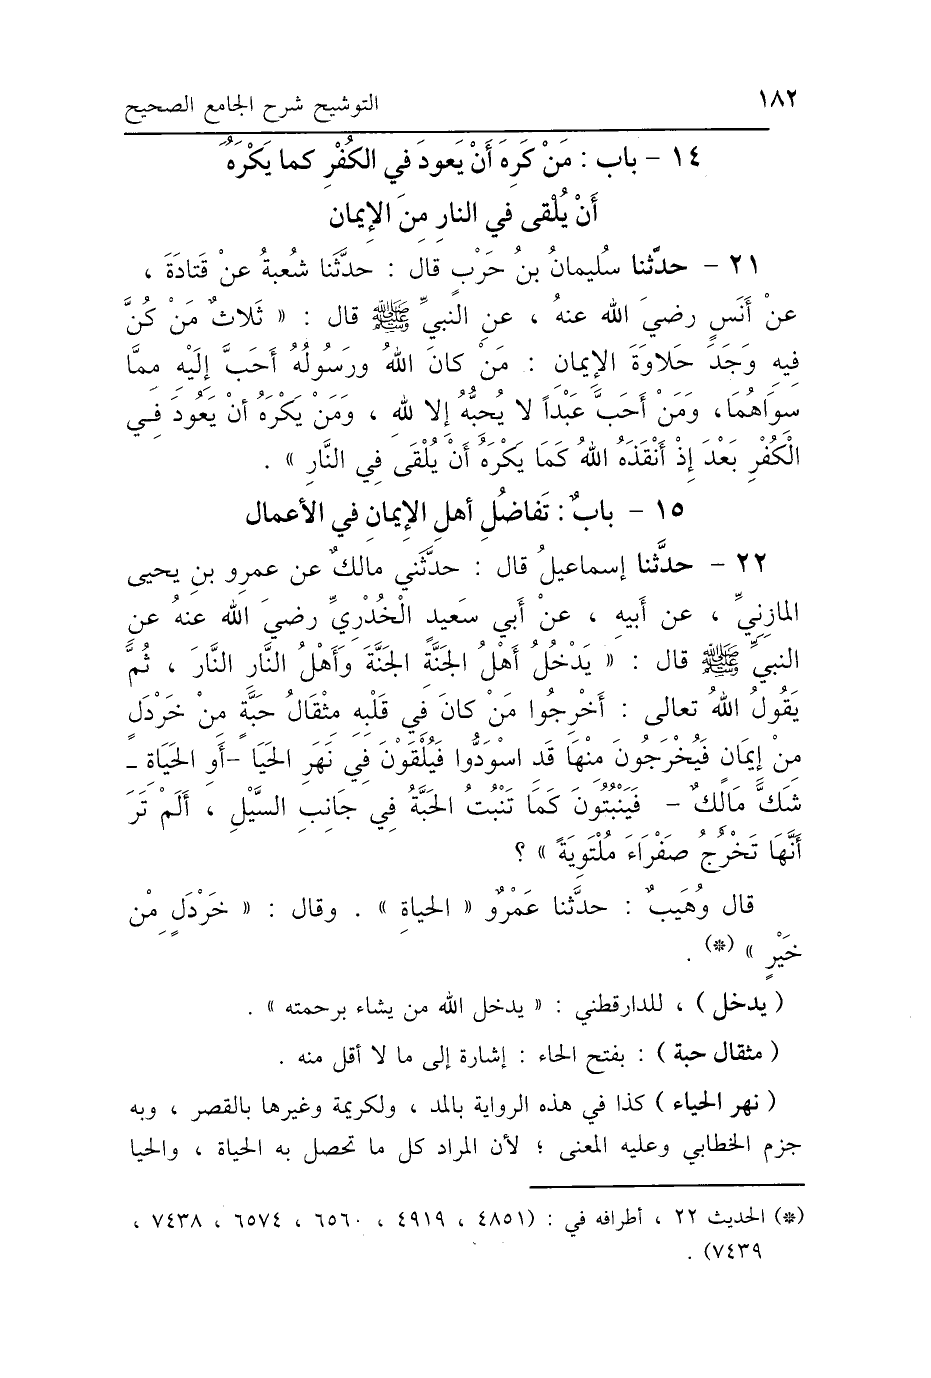 ١٨٢
التوشيح شرح الجامع الصحيح
١٤ - باب : مَنْ كَرِهَ أَنْ يَعودَ في الكُفْرِ كما يَكْرَهُ
أَنْ يُلْقى في النارِ مِنَ الإيمان
٢١ - حدَّثنا سُليمانُ بنُ حَرْبٍ قال : حدَّثَنا شُعبةُ عنْ قَتادَةَ ،
عنْ أَنَسٍ رضيَ الله عنهُ ، عنِ النبيِّ ﷺ قال : « ثَلاثٌ مَنْ كُنَّ
فيهِ وَجَدَ حَلاوَةَ الإيمان : مَنْ كانَ اللهُ ورَسُولُهُ أَحَبَّ إِلَيْهِ ممَّا
سِواهُمَا، وَمَنْ أَحَبَّ عَبْداً لا يُحبُّهُ إلا لله ، وَمَنْ يَكْرَهُ أنْ يَعُودَ فـي
الْكُفْرِ بَعْدَ إِذْ أَنْقَذَهُ اللهُ كَمَا يَكْرَهُ أَنْ يُلْقَى فِي النَّارِ » .
١٥ - بابٌ : تَفاضُلِ أهلِ الإيمانِ في الأعمال
٢٢ - حدَّثنا إسماعيلُ قال : حدَّثَني مالكٌ عن عمرِو بنِ يحيى
المازِنيِّ ، عن أَبيهِ ، عنْ أبي سَعيدٍ الْخُدْريِّ رضيَ الله عنهُ عنِ
النبيِّ ﷺ قال : « يَدْخلُ أَهْلُ الجَنَّةِ الجَنَّةَ وَأَهْلُ النَّارِ النَّارَ ، ثُمَّ
يَقُولُ اللهُ تعالى : أَخْرِجُوا مَنْ كانَ فِي قَلْبِهِ مثْقَالُ حبَّةٍ منْ خَرْدَلٍ
منْ إِيمَانٍ فَيُخْرَجُونَ منْهَا قَد اسْوَدُّوا فَيُلْقَوْنَ فِي نَهَرِ الحَيَا -أَو الحَيَاةِ -
شَكَّ مَالكٌ - فَيَنْبُتُونَ كَمَا تَنْبُتُ الحَبَّةُ فِي جَانِبِ السَّيْلِ ، أَلَمْ تَرَ
أَنَّهَا تَخْرُجُ صَفْرَاءَ مُلْتَوِيَةً » ؟
قال وُهَيبٌ : حدَّثنا عَمْرٌو « الحياةِ » . وقال : « خَرْدَلٍ مِنْ
خَيْرٍ » (*) .
( يدخل ) ، للدارقطني : « يدخل الله من يشاء برحمته » .
( مثقال حبة ) : بفتح الحاء : إشارة إلى ما لا أقل منه .
( نهر الحياء ) كذا في هذه الرواية بالمد ، ولكريمة وغيرها بالقصر ، وبه
جزم الخطابي وعليه المعنى ؛ لأن المراد كل ما تحصل به الحياة ، والحيا
(*) الحديث ٢٢ ، أطرافه في : (٤٨٥١ ، ٤٩١٩ ، ٦٥٦٠ ، ٦٥٧٤ ، ٧٤٣٨ ،
٧٤٣٩) .